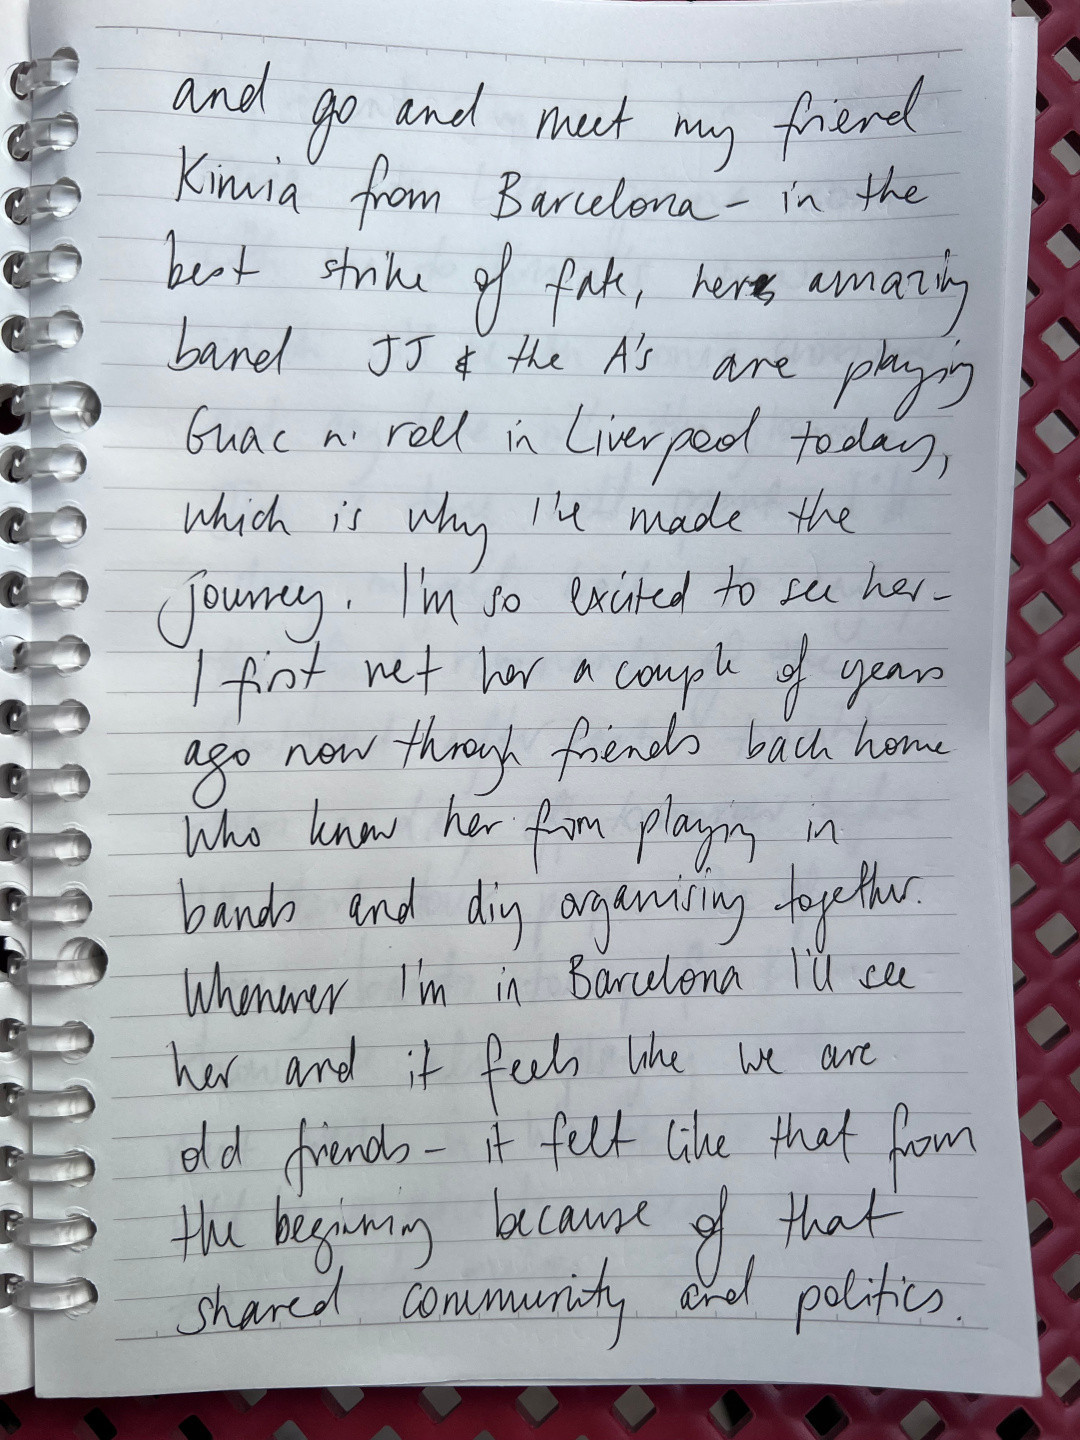 and go and meet my friend
Kimia from Barcelona - in the
best strike of fate, her amazing
band JJ & the A's are playing
Guac n' roll in Liverpool today,
which is why I've made the
journey. I'm so excited to see her -
I first met her a couple of years
ago now through friends back home
who know her from playing in
bands and diy organising together.
Whenever I'm in Barcelona I'll see
her and it feels like we are
old friends - it felt like that from
the beginning because of that
shared community and politics.